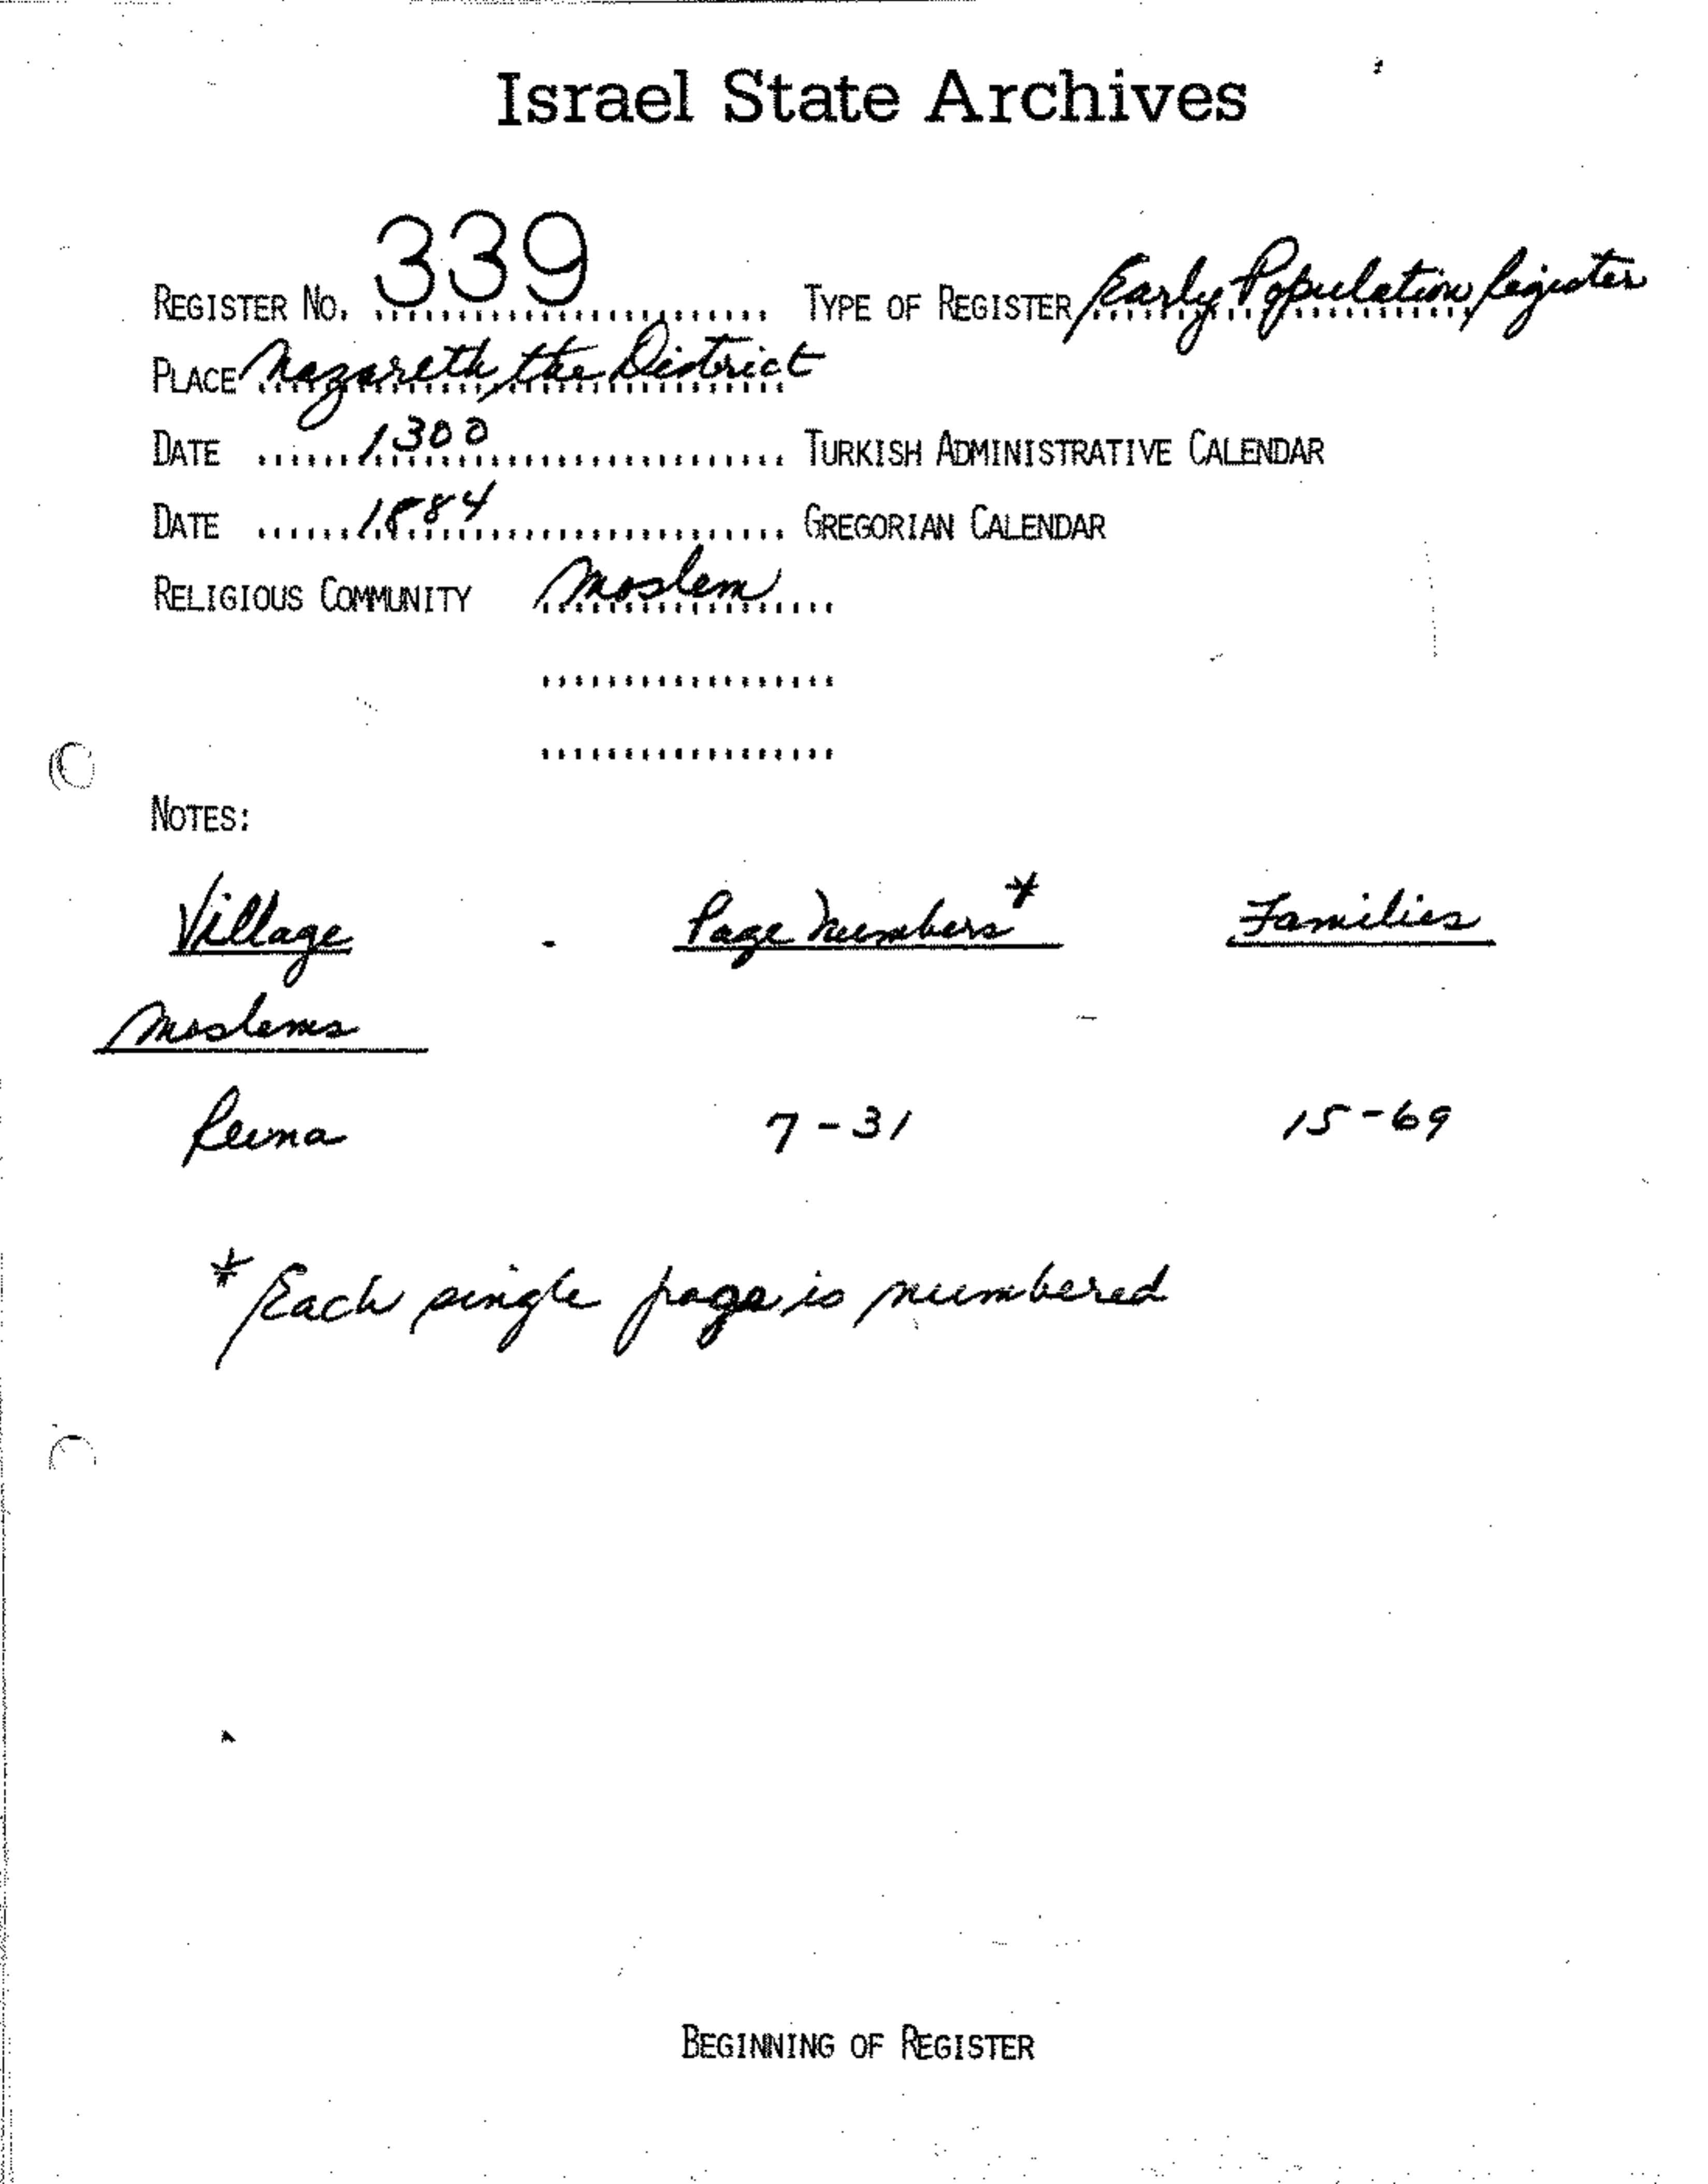 Israel State Archives
REGISTER NO. 339 TYPE OF REGISTER Early Population Register
PLACE Nazareth, the District
DATE 1300 TURKISH ADMINISTRATIVE CALENDAR
DATE 1884 GREGORIAN CALENDAR
RELIGIOUS COMMUNITY Moslem
NOTES:
Village - Page Numbers* Families
Moslems
Reina 7-31 15-69
* Each single page is numbered
BEGINNING OF REGISTER